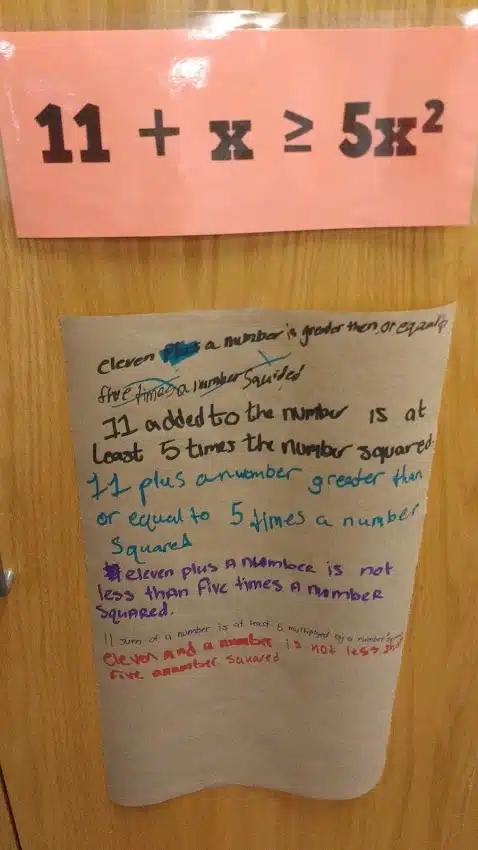 11 + x ≥ 5x²
eleven plus a number is greater then, or equal to
five times a number Squided
11 added to the number is at
least 5 times the number squared.
11 plus a number greater than
or equal to 5 times a number
Squared
eleven plus A number is not
less than five times A number
squared.
11 sum of a number is at least 5 multiplied by a number
eleven and a number is not less than
five a number squared